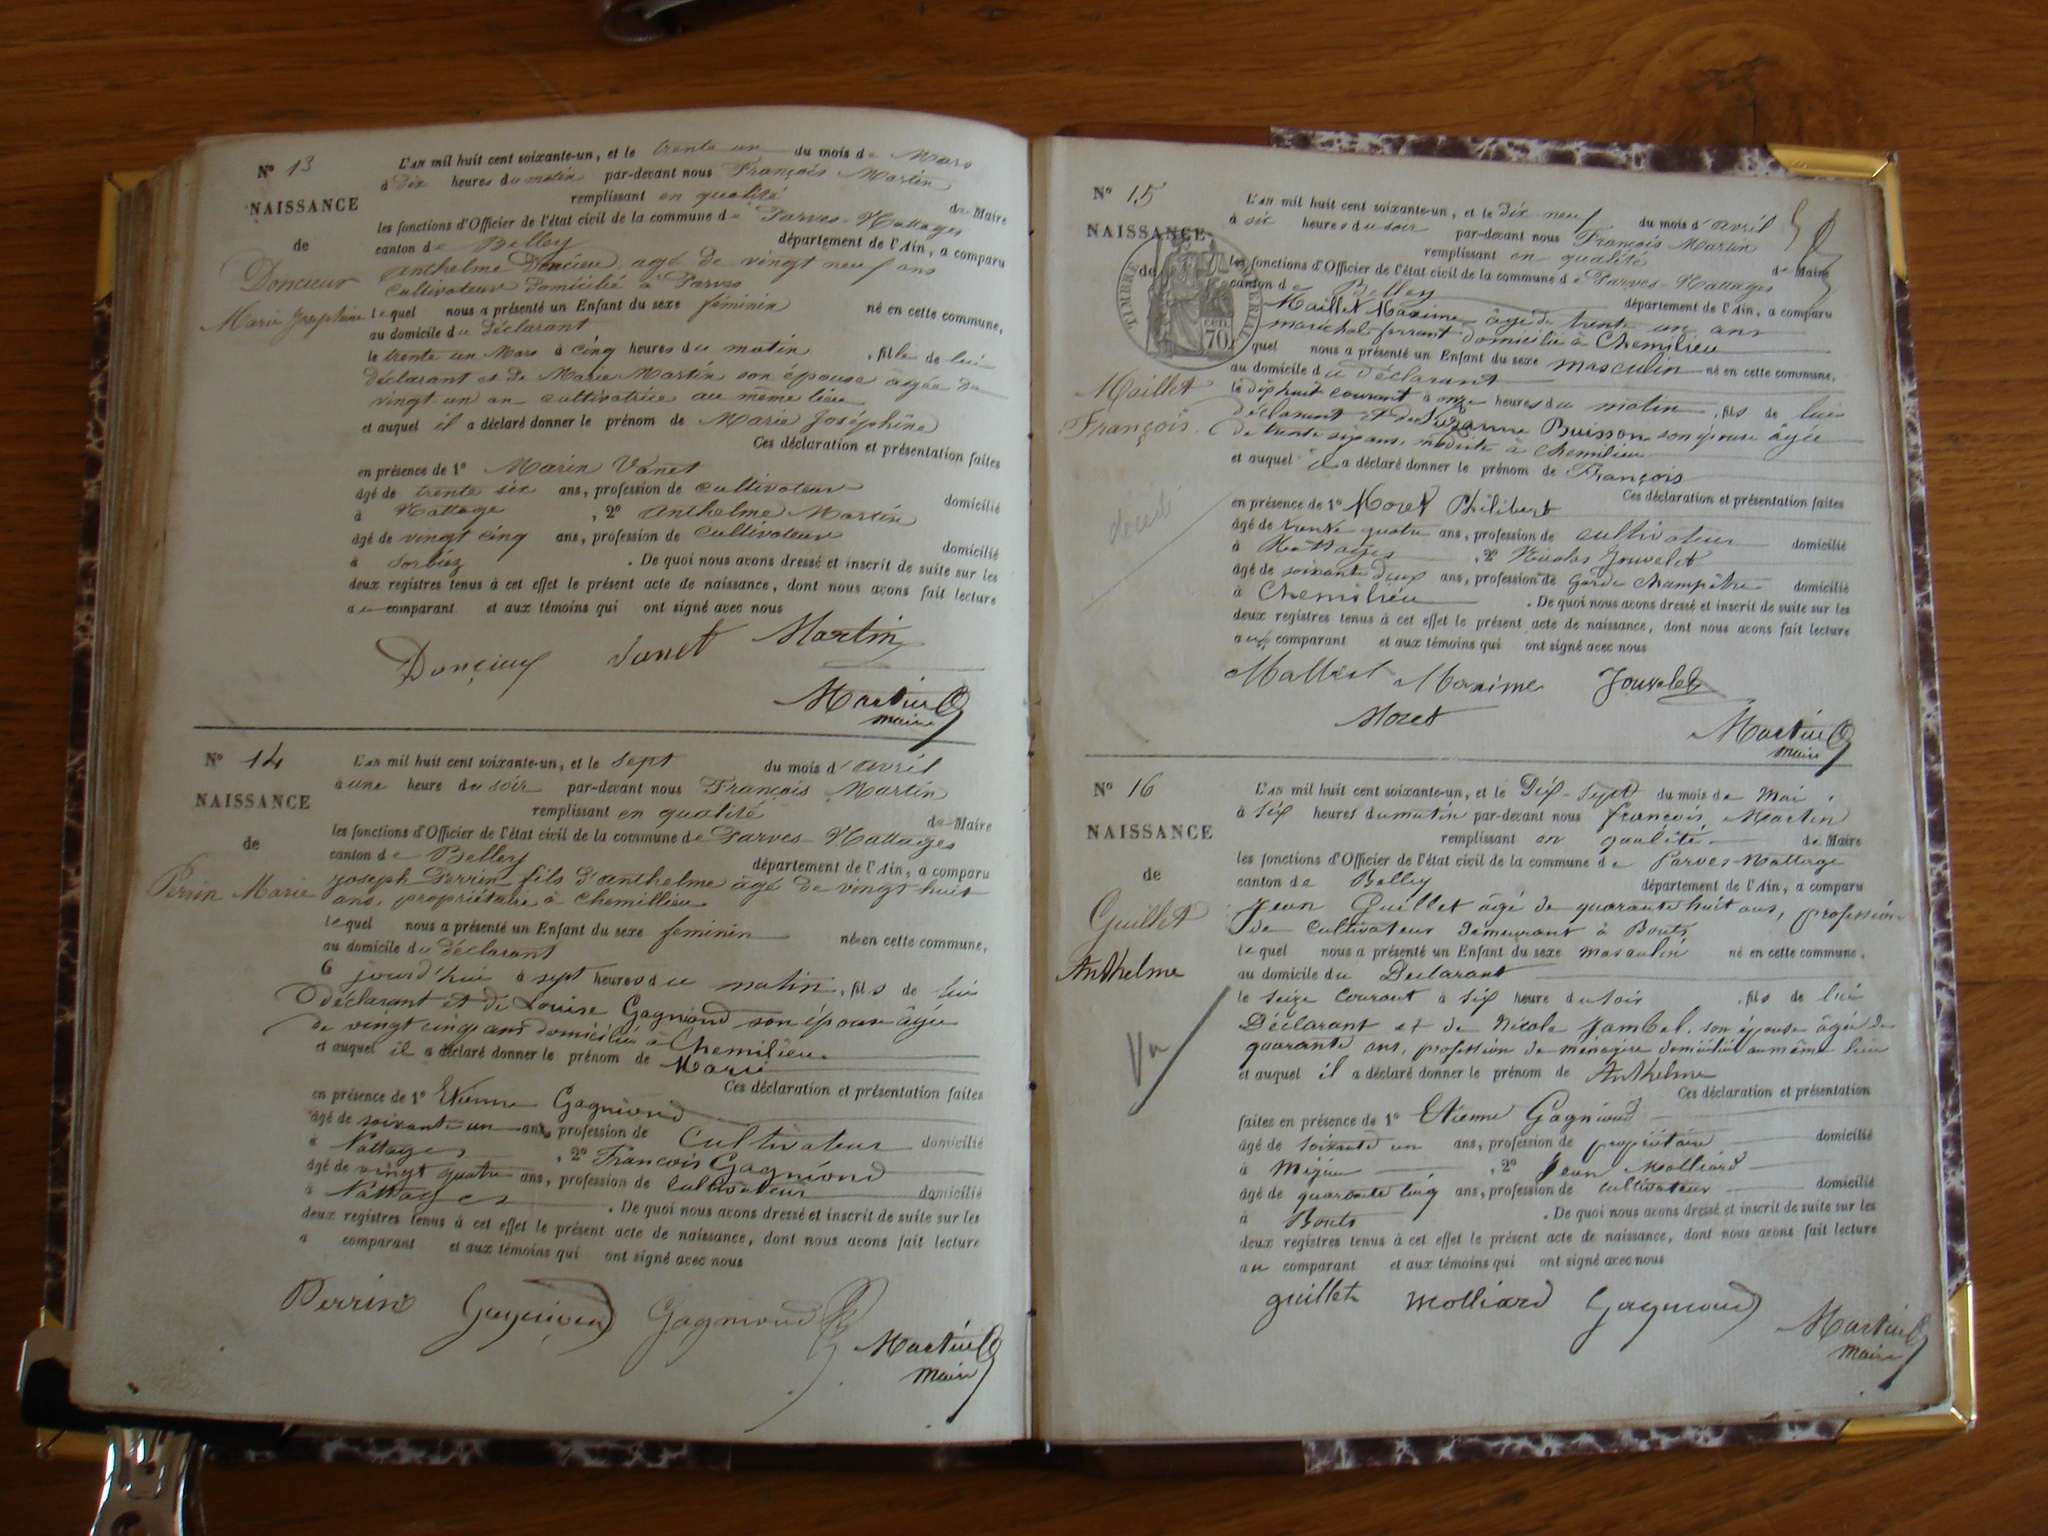 Nº 13
NAISSANCE
de
Doncieux
Marie Joséphine
L'an mil huit cent soixante-un, et le trente un du mois de Mars
à dix heures du matin par-devant nous François Martin
remplissant en qualité de Maire
les fonctions d'Officier de l'état civil de la commune de Parves-Nattages
canton de Belley département de l'Ain, a comparu
anthelme Doncieu agé de vingt neuf ans
cultivateur domicilié à Parves
lequel nous a présenté un Enfant du sexe féminin né en cette commune,
au domicile du déclarant
le trente un Mars à cinq heures du matin, fille de lui
déclarant et de Marie Martin son épouse agée de
vingt-un an cultivatrice au même lieu
et auquel il a déclaré donner le prénom de Marie Joséphine
Ces déclaration et présentation faites
en présence de 1º Marin Vanet
âgé de trente six ans, profession de cultivateur
domicilié
à Nattage, 2º anthelme Martin
âgé de vingt cinq ans, profession de cultivateur
domicilié
à Sorbiez. De quoi nous avons dressé et inscrit de suite sur les
deux registres tenus à cet effet le présent acte de naissance, dont nous avons fait lecture
au comparant et aux témoins qui ont signé avec nous
Vanet Martin
Martin
maire
Nº 14
NAISSANCE
de
Perrin Marie
L'an mil huit cent soixante-un, et le sept du mois d'avril
à une heure du soir par-devant nous François Martin
remplissant en qualité de Maire
les fonctions d'Officier de l'état civil de la commune de Parves-Nattages
canton de Belley département de l'Ain, a comparu
joseph Perrin fils d'anthelme âgé de vingt huit
ans, propriétaire à Chemillieu
lequel nous a présenté un Enfant du sexe féminin né en cette commune,
au domicile du déclarant
jourd'hui à sept heures du matin, fils de lui
déclarant et de Louise Gagniond son épouse âgée
de vingt cinq ans domiciliée à Chemilieu
et auquel il a déclaré donner le prénom de Marie
Ces déclaration et présentation faites
en présence de 1º Etienne Gagniond
âgé de soixante un ans, profession de cultivateur domicilié
à Nattages, 2º François Gagniond
âgé de vingt quatre ans, profession de cultivateur domicilié
à Nattages. De quoi nous avons dressé et inscrit de suite sur les
deux registres tenus à cet effet le présent acte de naissance, dont nous avons fait lecture
a comparant et aux témoins qui ont signé avec nous
Perrin Gagniond Gagniond
Martin
maire
Nº 15
NAISSANCE
de
TIMBRE IMPERIAL
70 CEN.
Maillet
François
L'an mil huit cent soixante-un, et le dix neuf du mois d'avril
à six heures du soir par-devant nous François Martin
remplissant en qualité de Maire
les fonctions d'Officier de l'état civil de la commune de Parves-Nattages
canton de Belley département de l'Ain, a comparu
Maillet Maxime âgé de trente un ans
maréchal-ferrant domicilié à Chemilieu
quel nous a présenté un Enfant du sexe masculin né en cette commune,
au domicile du déclarant
le dix huit courant à onze heures du matin, fils de lui
déclarant et de Suzanne Buisson son épouse âgée
de trente six ans, à Chemilieu
et auquel il a déclaré donner le prénom de François
Ces déclaration et présentation faites
en présence de 1º Moret Philibert
âgé de trente quatre ans, profession de cultivateur domicilié
à Nattages, 2º Nicolas Jouvelet
âgé de soixante deux ans, profession de garde champêtre domicilié
à Chemilieu. De quoi nous avons dressé et inscrit de suite sur les
deux registres tenus à cet effet le présent acte de naissance, dont nous avons fait lecture
aux comparant et aux témoins qui ont signé avec nous
Maxime Jouvelet
Moret
Martin
maire
Nº 16
NAISSANCE
de
Guillet
Anthelme
Vu
L'an mil huit cent soixante-un, et le Dix-sept du mois de Mai
à six heures du matin par-devant nous françois Martin
remplissant en qualité de Maire
les fonctions d'Officier de l'état civil de la commune de Parves-Nattage
canton de Belley département de l'Ain, a comparu
Jean Guillet âgé de quarante huit ans, profession
de cultivateur demeurant à Bouts
lequel nous a présenté un Enfant du sexe masculin né en cette commune,
au domicile du Déclarant
le seize courant à six heure du soir, fils de lui
Déclarant et de Nicole Jambel son épouse âgée de
quarante ans, profession de ménagère domiciliée au même lieu
et auquel il a déclaré donner le prénom de Anthelme
Ces déclaration et présentation
faites en présence de 1º Etienne Gagniond
âgé de soixante un ans, profession de propriétaire domicilié
à, 2º Jean Molliard
âgé de quarante cinq ans, profession de cultivateur domicilié
à Bouts. De quoi nous avons dressé et inscrit de suite sur les
deux registres tenus à cet effet le présent acte de naissance, dont nous avons fait lecture
au comparant et aux témoins qui ont signé avec nous
guillet molliard Gagniond
Martin
maire